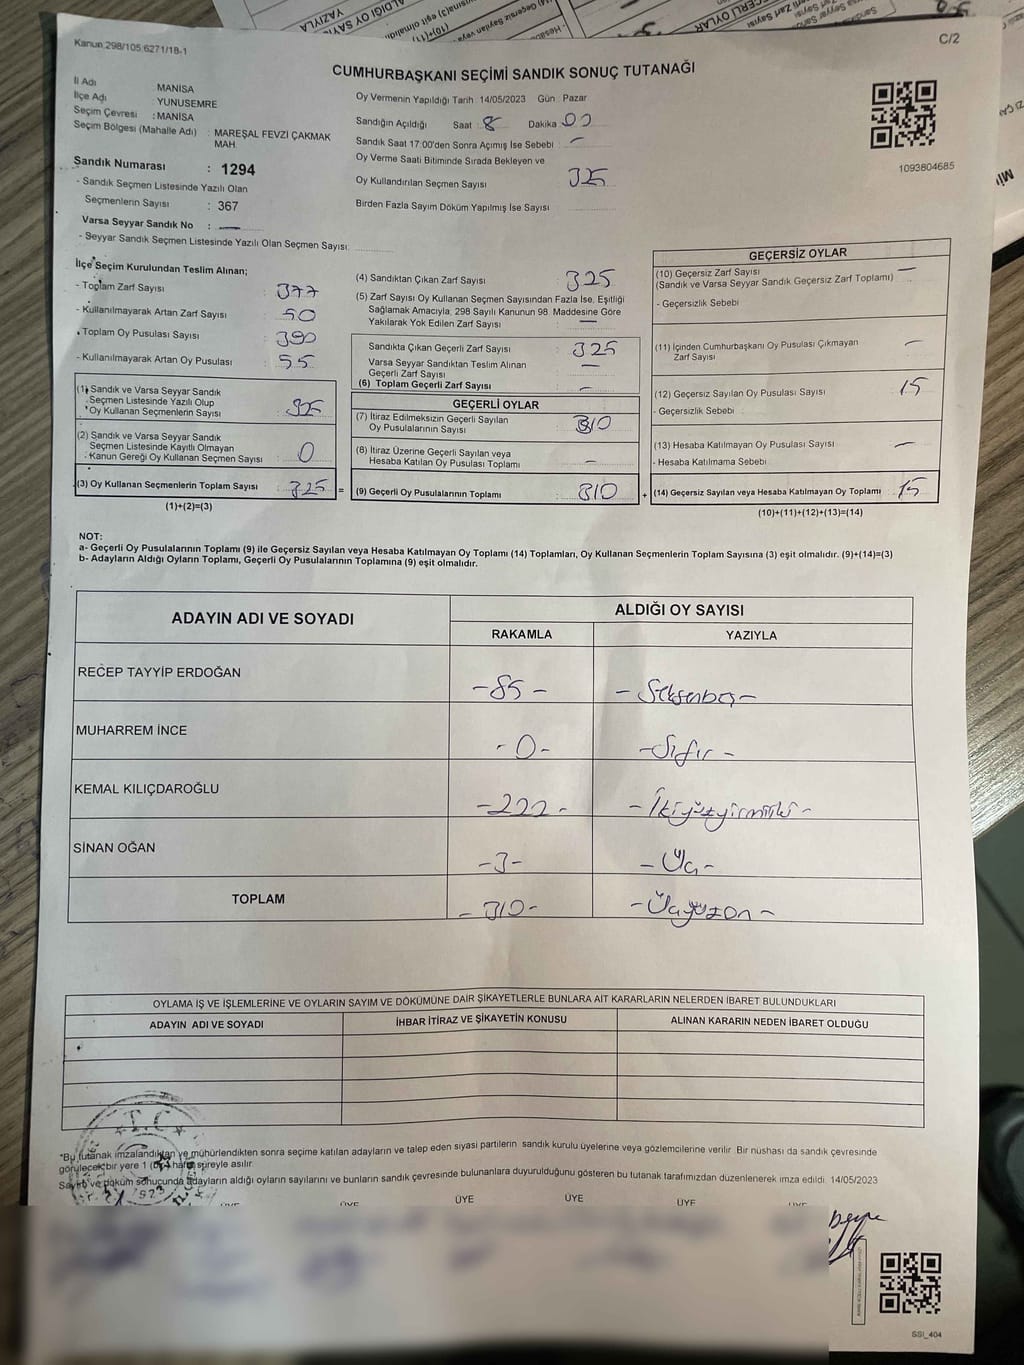 Kanun 298/105 6271/18-1
C/2
CUMHURBAŞKANI SEÇİMİ SANDIK SONUÇ TUTANAĞI
İl Adı : MANİSA
İlçe Adı : YUNUSEMRE
Seçim Çevresi : MANİSA
Seçim Bölgesi (Mahalle Adı) : MAREŞAL FEVZİ ÇAKMAK MAH
Sandık Numarası : 1294
- Sandık Seçmen Listesinde Yazılı Olan
Seçmenlerin Sayısı : 367
Varsa Seyyar Sandık No : —
- Seyyar Sandık Seçmen Listesinde Yazılı Olan Seçmen Sayısı:
Oy Vermenin Yapıldığı Tarih 14/05/2023 Gün Pazar
Sandığın Açıldığı Saat 8 Dakika 00
Sandık Saat 17:00'den Sonra Açımış İse Sebebi : —
Oy Verme Saati Bitiminde Sırada Bekleyen ve
Oy Kullandırılan Seçmen Sayısı 325
Birden Fazla Sayım Döküm Yapılmış İse Sayısı
1093804685
İlçe Seçim Kurulundan Teslim Alınan;
- Toplam Zarf Sayısı : 377
- Kullanılmayarak Artan Zarf Sayısı : 50
- Toplam Oy Pusulası Sayısı : 380
- Kullanılmayarak Artan Oy Pusulası : 55
(1) Sandık ve Varsa Seyyar Sandık
Seçmen Listesinde Yazılı Olup
Oy Kullanan Seçmenlerin Sayısı : 325
(2) Sandık ve Varsa Seyyar Sandık
Seçmen Listesinde Kayıtlı Olmayan
Kanun Gereği Oy Kullanan Seçmen Sayısı : 0
(3) Oy Kullanan Seçmenlerin Toplam Sayısı : 325 =
(1)+(2)=(3)
(4) Sandıktan Çıkan Zarf Sayısı : 325
(5) Zarf Sayısı Oy Kullanan Seçmen Sayısından Fazla İse, Eşitliği
Sağlamak Amacıyla, 298 Sayılı Kanunun 98. Maddesine Göre
Yakılarak Yok Edilen Zarf Sayısı : —
Sandıkta Çıkan Geçerli Zarf Sayısı : 325
Varsa Seyyar Sandıktan Teslim Alınan
Geçerli Zarf Sayısı : —
(6) Toplam Geçerli Zarf Sayısı : —
GEÇERLİ OYLAR
(7) İtiraz Edilmeksizin Geçerli Sayılan
Oy Pusulalarının Sayısı : 310
(8) İtiraz Üzerine Geçerli Sayılan veya
Hesaba Katılan Oy Pusulası Toplamı : —
(9) Geçerli Oy Pusulalarının Toplamı : 310 +
GEÇERSİZ OYLAR
(10) Geçersiz Zarf Sayısı —
(Sandık ve Varsa Seyyar Sandık Geçersiz Zarf Toplamı) :
- Geçersizlik Sebebi :
(11) İçinden Cumhurbaşkanı Oy Pusulası Çıkmayan
Zarf Sayısı : —
(12) Geçersiz Sayılan Oy Pusulası Sayısı : 15
- Geçersizlik Sebebi :
(13) Hesaba Katılmayan Oy Pusulası Sayısı : —
- Hesaba Katılmama Sebebi :
(14) Geçersiz Sayılan veya Hesaba Katılmayan Oy Toplamı : 15
(10)+(11)+(12)+(13)=(14)
NOT:
a- Geçerli Oy Pusulalarının Toplamı (9) ile Geçersiz Sayılan veya Hesaba Katılmayan Oy Toplamı (14) Toplamları, Oy Kullanan Seçmenlerin Toplam Sayısına (3) eşit olmalıdır. (9)+(14)=(3)
b- Adayların Aldığı Oyların Toplamı, Geçerli Oy Pusulalarının Toplamına (9) eşit olmalıdır.
ADAYIN ADI VE SOYADI
ALDIĞI OY SAYISI
RAKAMLA YAZIYLA
RECEP TAYYİP ERDOĞAN -85- -Seksenbeş-
MUHARREM İNCE -0- -Sıfır-
KEMAL KILIÇDAROĞLU -222- -İkiyüzyirmiiki-
SİNAN OĞAN -3- -Üç-
TOPLAM -310- -Üçyüzon-
OYLAMA İŞ VE İŞLEMLERİNE VE OYLARIN SAYIM VE DÖKÜMÜNE DAİR ŞİKAYETLERLE BUNLARA AİT KARARLARIN NELERDEN İBARET BULUNDUKLARI
ADAYIN ADI VE SOYADI İHBAR İTİRAZ VE ŞİKAYETİN KONUSU ALINAN KARARIN NEDEN İBARET OLDUĞU
T.C
1923
*Bu tutanak imzalandıktan ve mühürlendikten sonra seçime katılan adayların ve talep eden siyasi partilerin sandık kurulu üyelerine veya gözlemcilerine verilir. Bir nüshası da sandık çevresinde
görülecek bir yere 1 (bir) hafta süreyle asılır.
Sayım ve döküm sonucunda adayların aldığı oyların sayılarını ve bunların sandık çevresinde bulunanlara duyurulduğunu gösteren bu tutanak tarafımızdan düzenlenerek imza edildi. 14/05/2023
ÜYE ÜYE ÜYE ÜYE ÜYE
SSI_404